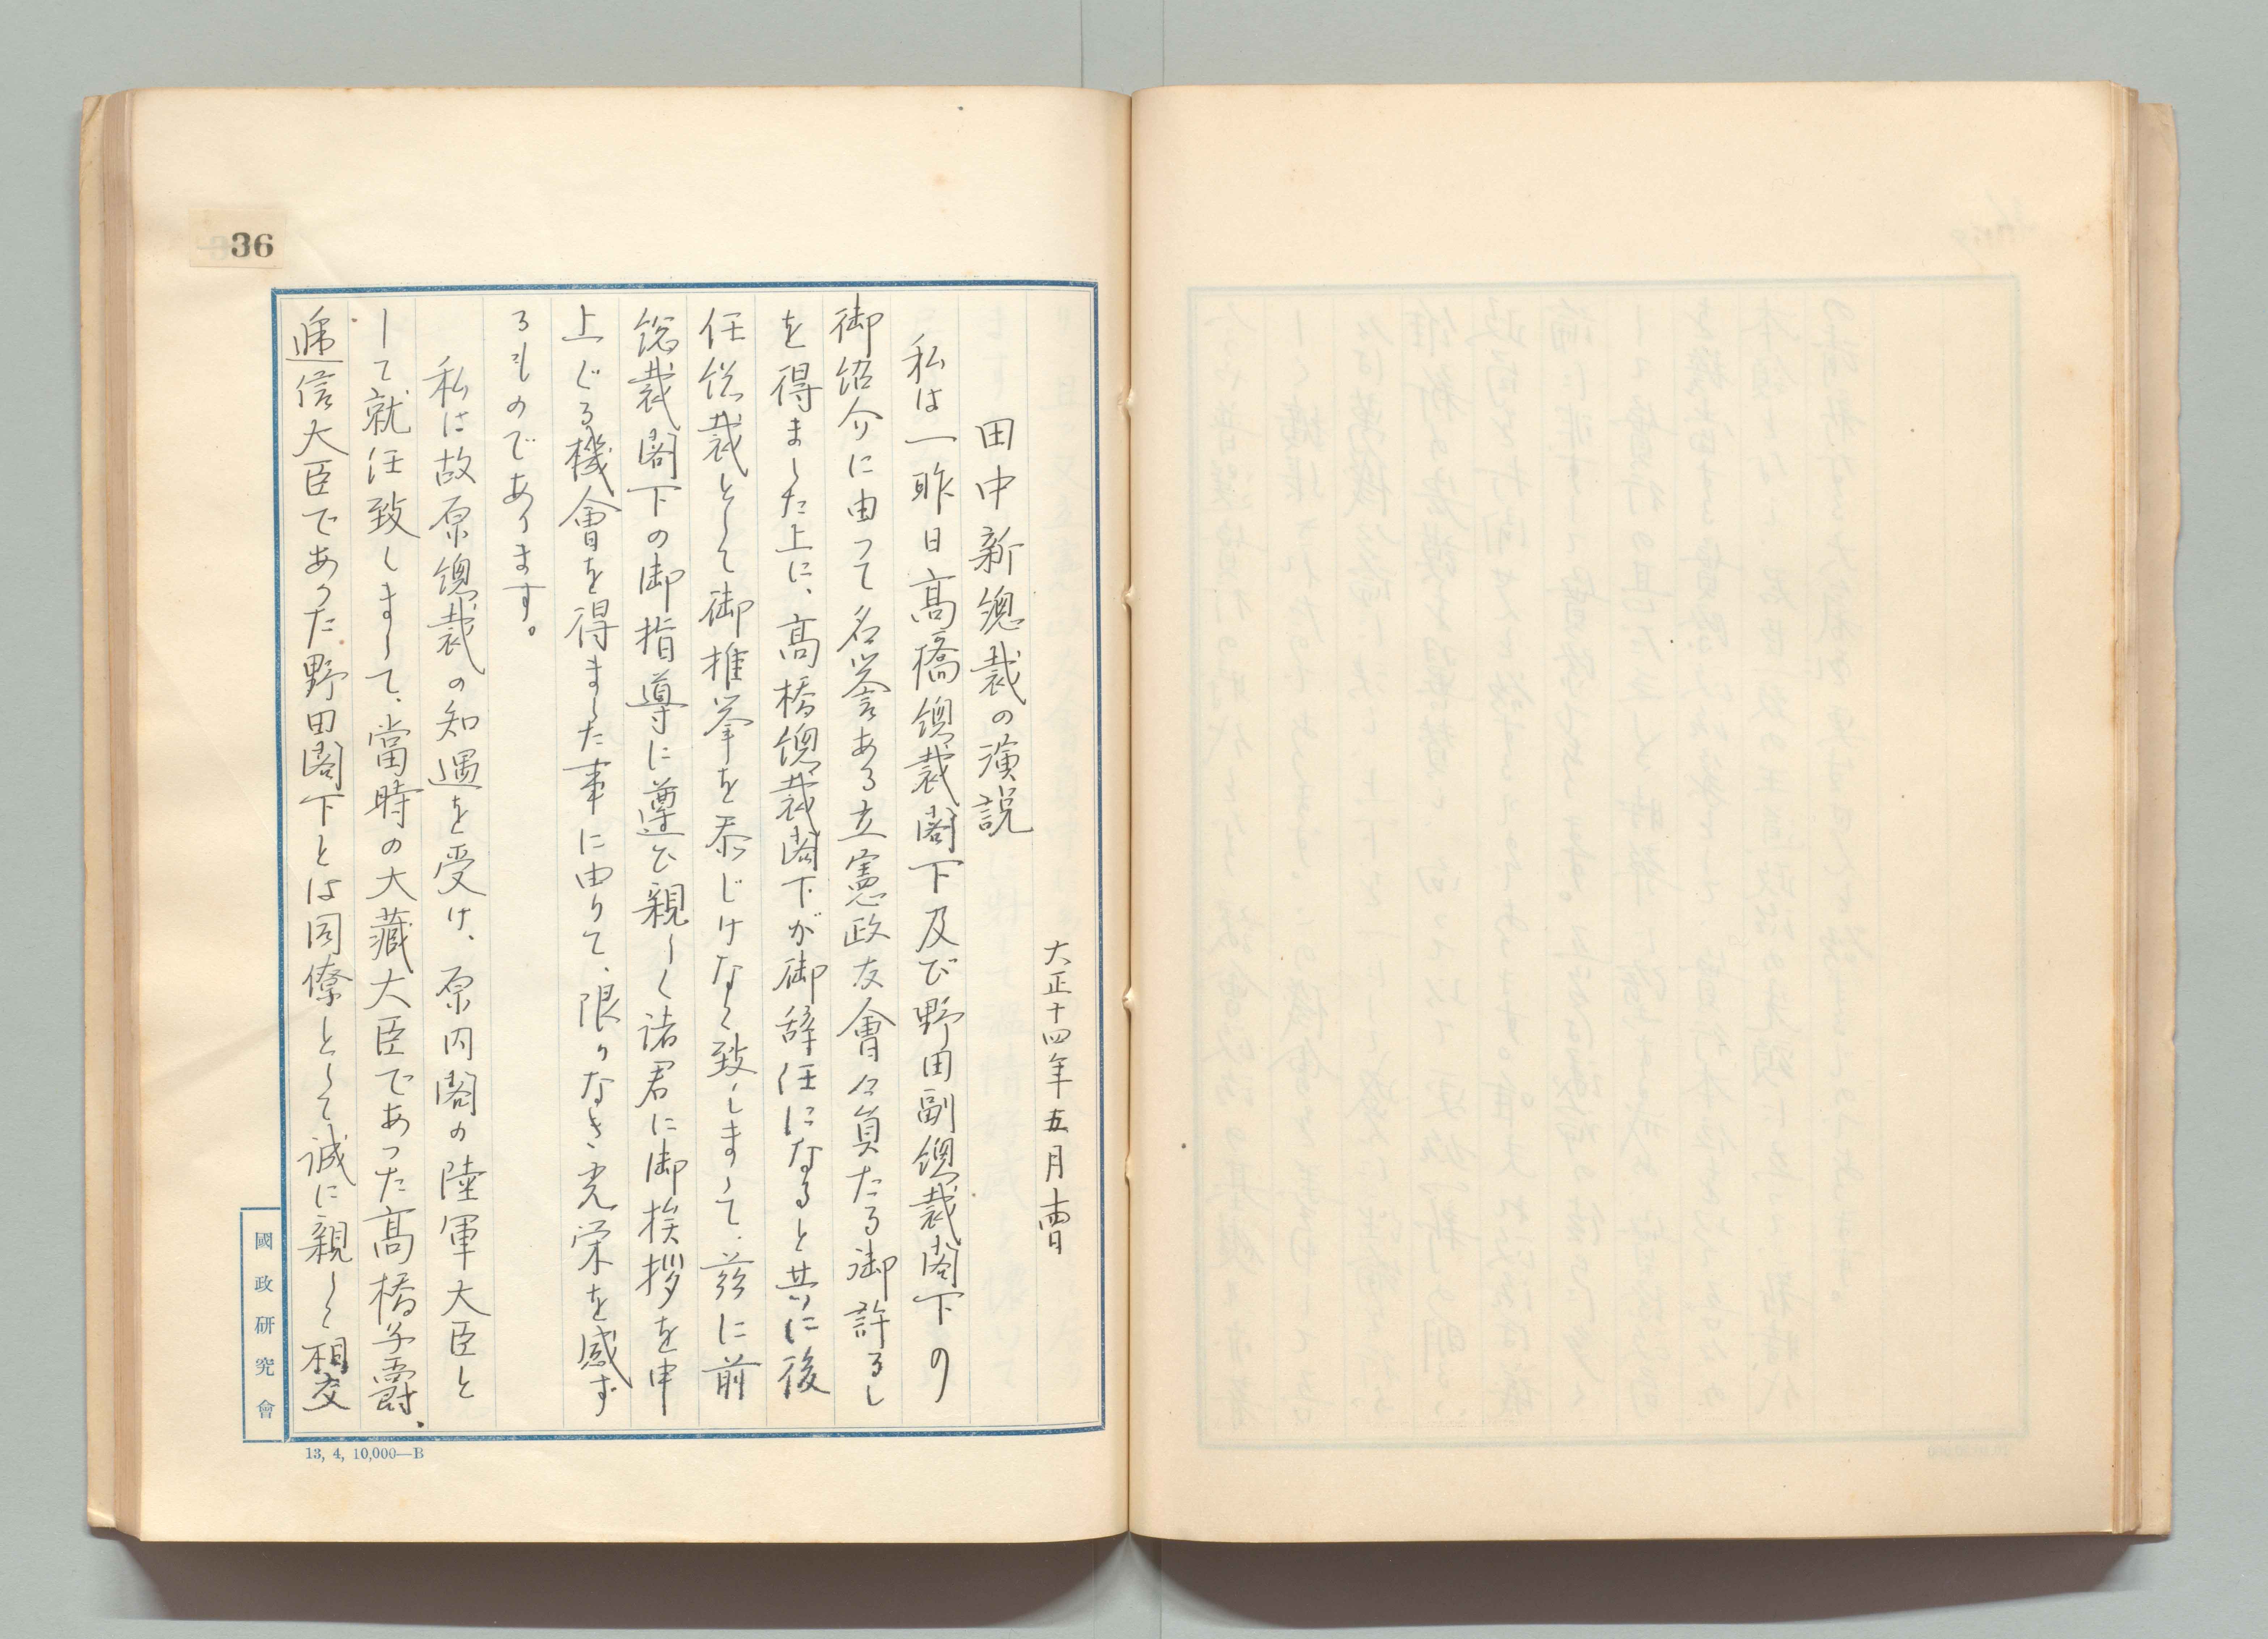 大正十四年五月十四日
田中新總裁の演説
私は一昨日高橋總裁閣下及び野田副總裁閣下の
御紹介に由って名誉ある立憲政友會々員たる御許るし
を得ました上に、高橋總裁閣下が御辞任になると共に後
任総裁として御推挙を忝じけなく致しまして、茲に前
総裁閣下の御指導に遵ひ親しく諸君に御挨拶を申
上ぐる機會を得ました事に由りて、限りなき光栄を感ず
るものであります。
私は故原總裁の知遇を受け、原内閣の陸軍大臣と
して就任致しまして、當時の大藏大臣であった高橋子爵、
逓信大臣であった野田閣下とは同僚として誠に親しく相交
36
國政研究會
13, 4, 10,000—B